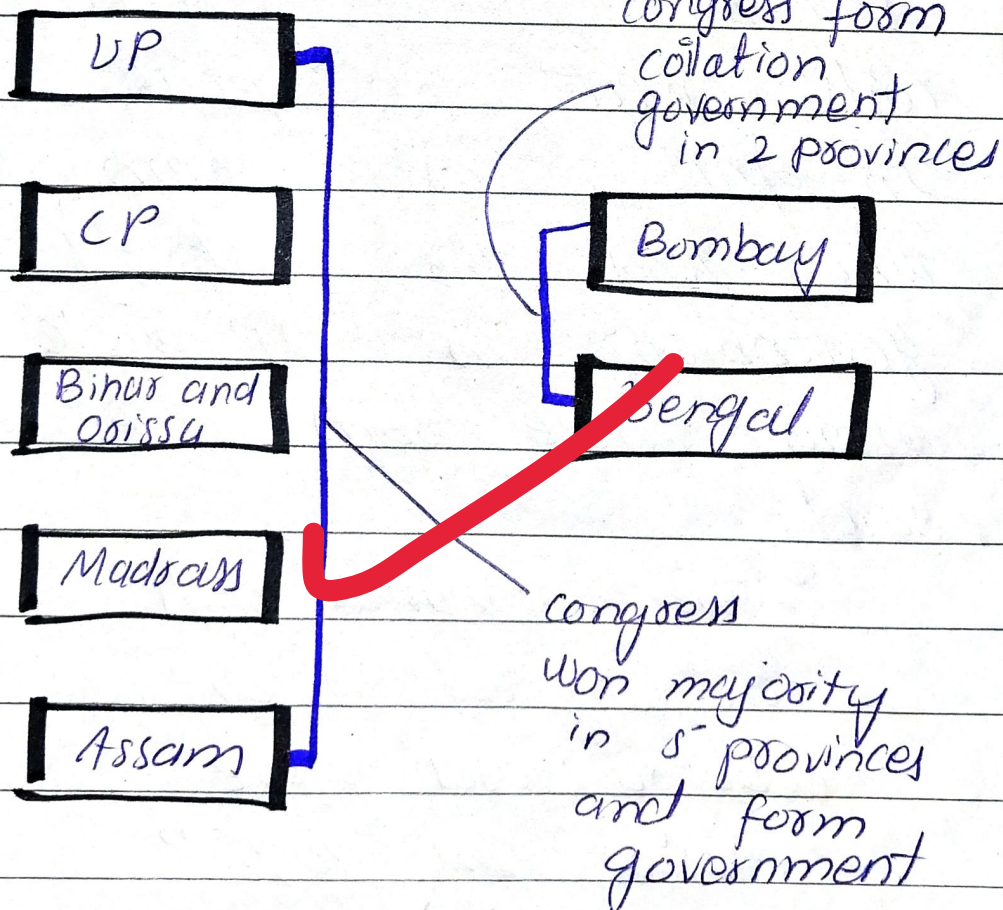 UP
CP
Bihar and
Orissa
Madrass
Assam
congress form
coilation
government
in 2 provinces
Bombay
Bengal
congress
won majority
in 5 provinces
and form
government